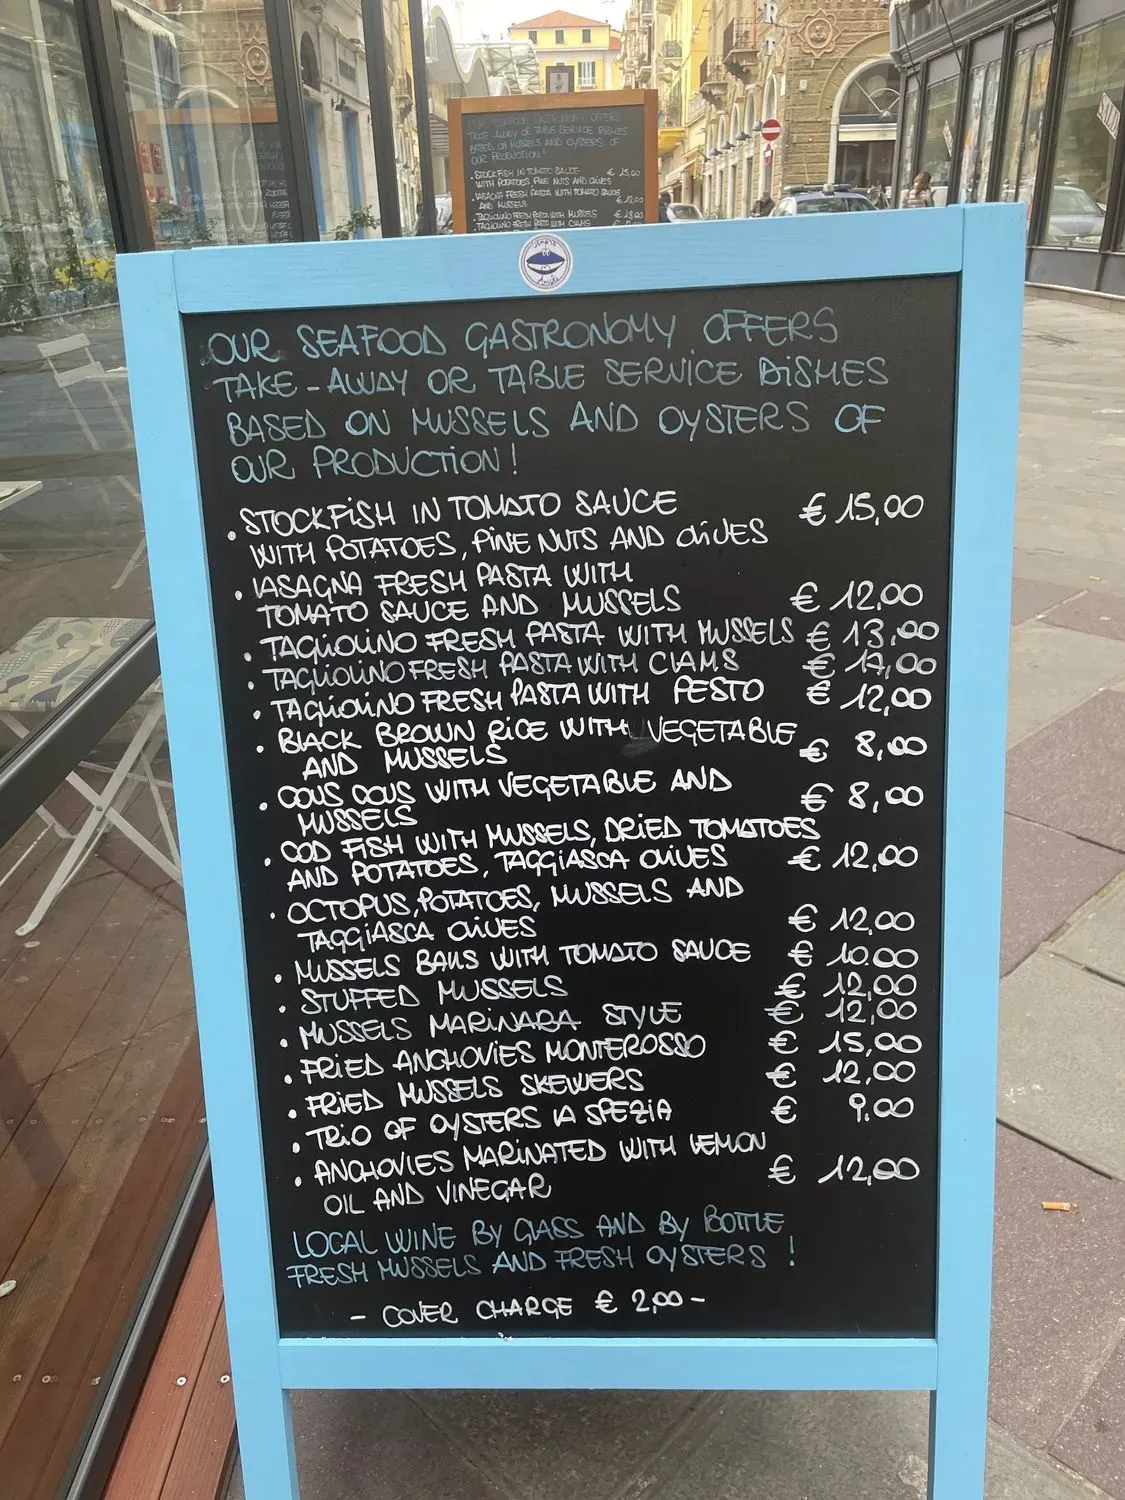 OUR SEAFOOD GASTRONOMY OFFERS
TAKE-AWAY OR TABLE SERVICE DISHES
BASED ON MUSSELS AND OYSTERS OF
OUR PRODUCTION!
• STOCKFISH IN TOMATO SAUCE € 15,00
WITH POTATOES, PINE NUTS AND OLIVES
• LASAGNA FRESH PASTA WITH
TOMATO SAUCE AND MUSSELS € 12,00
• TAGLIOLINO FRESH PASTA WITH MUSSELS € 13,00
• TAGLIOLINO FRESH PASTA WITH CLAMS € 17,00
• TAGLIOLINO FRESH PASTA WITH PESTO € 12,00
• BLACK BROWN RICE WITH VEGETABLE
AND MUSSELS € 8,00
• COUS COUS WITH VEGETABLE AND
MUSSELS € 8,00
• COD FISH WITH MUSSELS, DRIED TOMATOES
AND POTATOES, TAGGIASCA OLIVES € 12,00
• OCTOPUS, POTATOES, MUSSELS AND
TAGGIASCA OLIVES € 12,00
• MUSSELS BALLS WITH TOMATO SAUCE € 10.00
• STUFFED MUSSELS € 12,00
• MUSSELS MARINARA STYLE € 12,00
• FRIED ANCHOVIES MONTEROSSO € 15,00
• FRIED MUSSELS SKEWERS € 12,00
• TRIO OF OYSTERS LA SPEZIA € 9,00
• ANCHOVIES MARINATED WITH LEMON
OIL AND VINEGAR € 12,00
LOCAL WINE BY GLASS AND BY BOTTLE
FRESH MUSSELS AND FRESH OYSTERS!
- COVER CHARGE € 2,00 -
OUR SEAFOOD GASTRONOMY OFFERS
TAKE-AWAY OR TABLE SERVICE DISHES
BASED ON MUSSELS AND OYSTERS OF
OUR PRODUCTION!
• STOCKFISH IN TOMATO SAUCE € 15,00
WITH POTATOES PINE NUTS AND OLIVES
• LASAGNA FRESH PASTA WITH TOMATO SAUCE
AND MUSSELS € 12,00
• TAGLIOLINO FRESH PASTA WITH MUSSELS
TAGLIOLINO FRESH PASTA WITH CLAMS